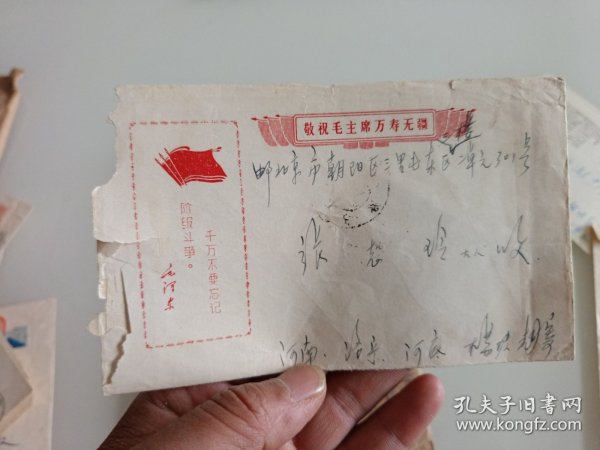 敬祝毛主席万寿无疆
邮北京市朝阳区三里屯东区 单元301号
张 玲 大人 收
千万不要忘记
阶级斗争。
毛泽东
河南 洛 河 相寄
孔夫子旧书网
www.kongfz.com